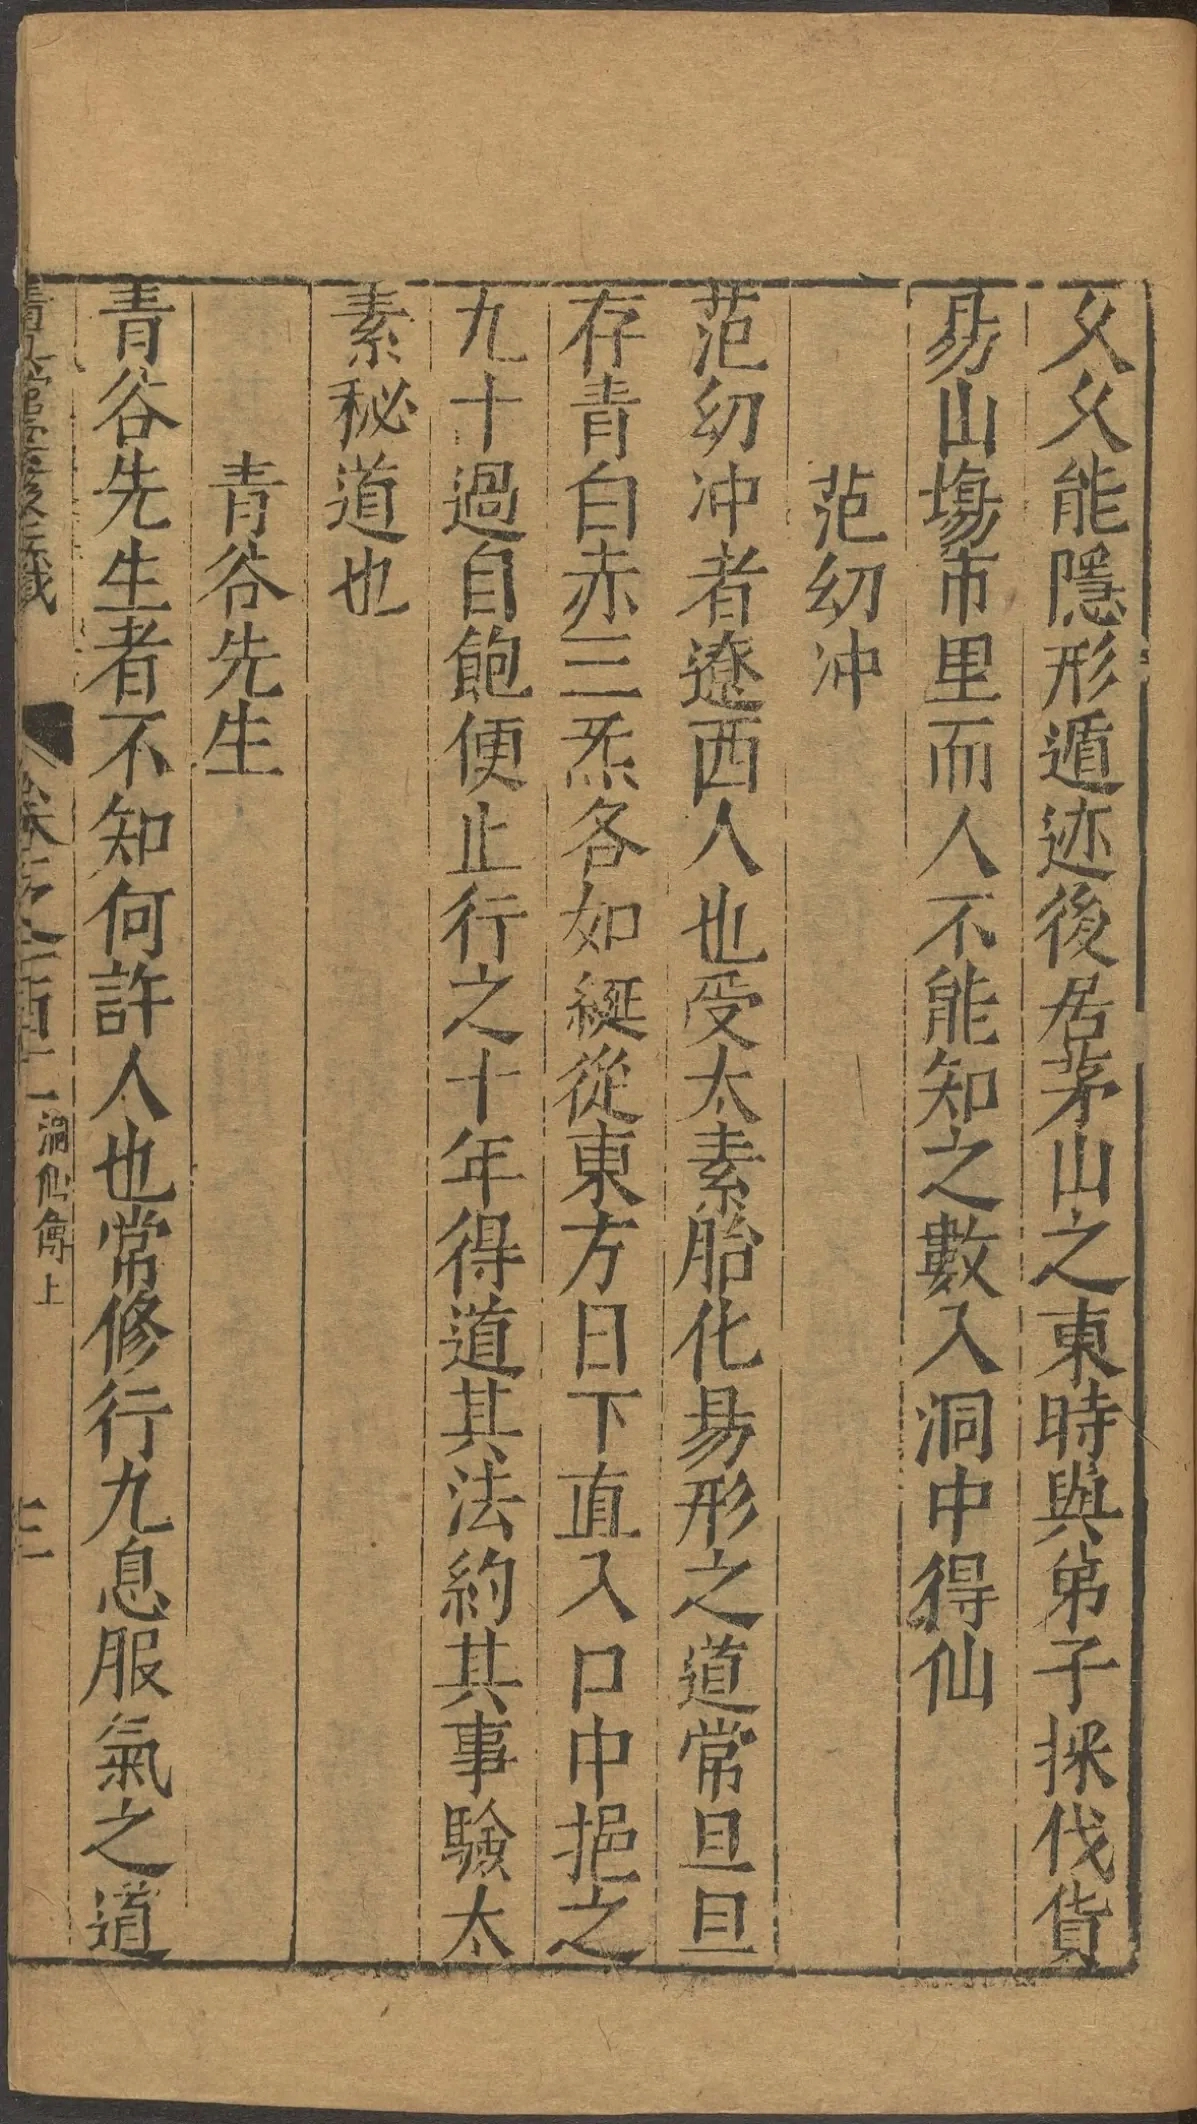 久久能隱形遁迹後居茅山之東時與弟子採伐貨
易山塲市里而人不能知之數入洞中得仙
范幼冲
范幼冲者遼西人也受太素胎化易形之道常旦旦
存青白赤三炁各如綖從東方日下直入口中挹之
九十過自飽便止行之十年得道其法約其事驗太
素秘道也
青谷先生
青谷先生者不知何許人也常修行九息服氣之道
洞仙傳上